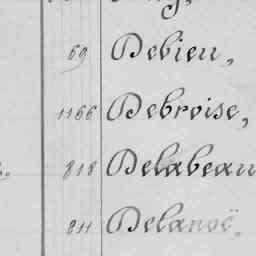 69 Debieu,
1166 Debroise,
818 Delabeau
811 Delanoë.